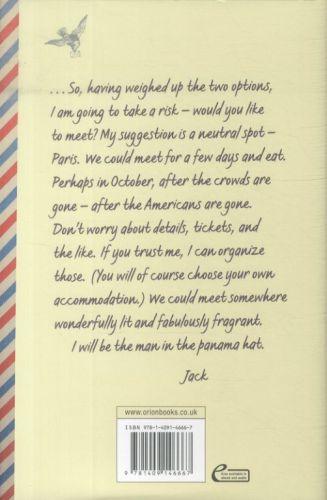 . . . So, having weighed up the two options,
I am going to take a risk – would you like
to meet? My suggestion is a neutral spot –
Paris. We could meet for a few days and eat.
Perhaps in October, after the crowds are
gone – after the Americans are gone.
Don't worry about details, tickets, and
the like. If you trust me, I can organize
those. (You will of course choose your own
accommodation.) We could meet somewhere
wonderfully lit and fabulously fragrant.
I will be the man in the panama hat.
Jack
www.orionbooks.co.uk
ISBN 978-1-4091-4666-7
9 781409 146667
e
Also available in
ebook and audio